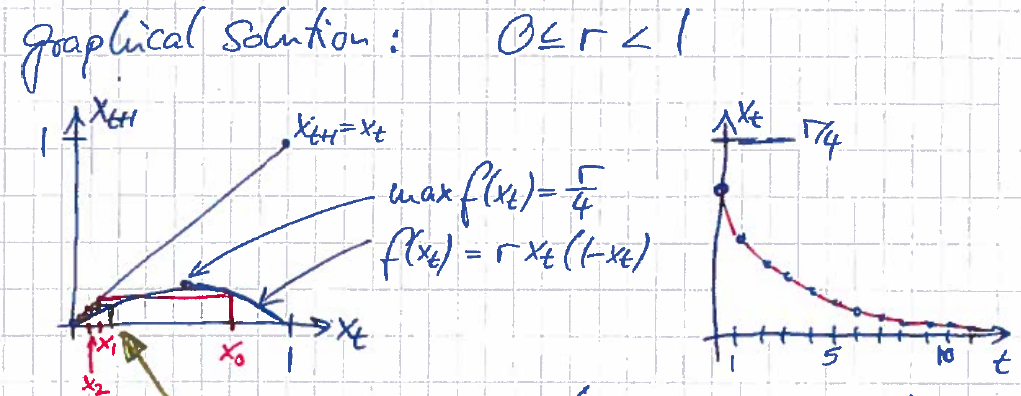 graphical solution: 0 ≤ r < 1
x_{t+1}
1
x_{t+1} = x_t
max f(x_t) = r/4
f(x_t) = r x_t (1-x_t)
x_t
x_1
x_0
1
x_2
x_t
r/4
1
5
10
t